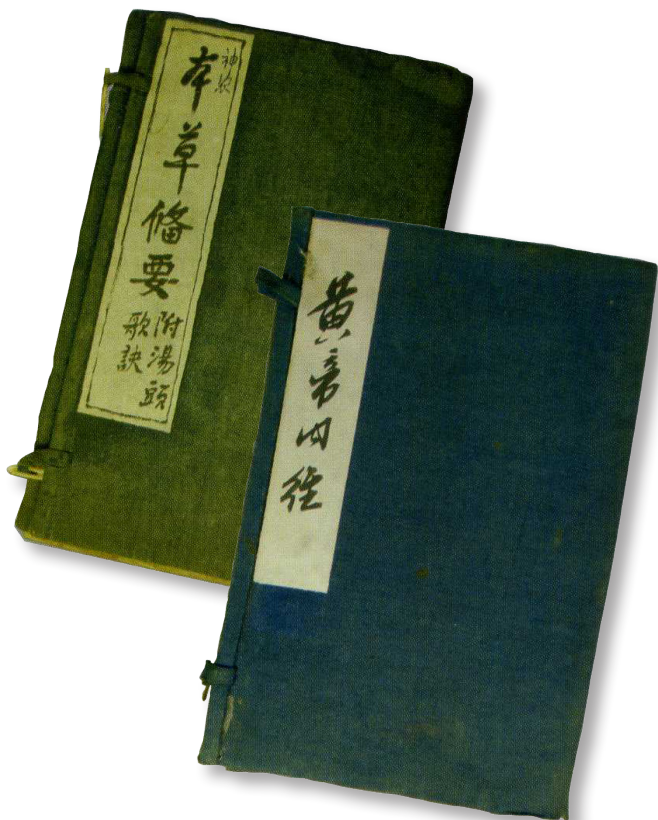 神农
本草備要
附湯頭
歌訣
黄帝内经